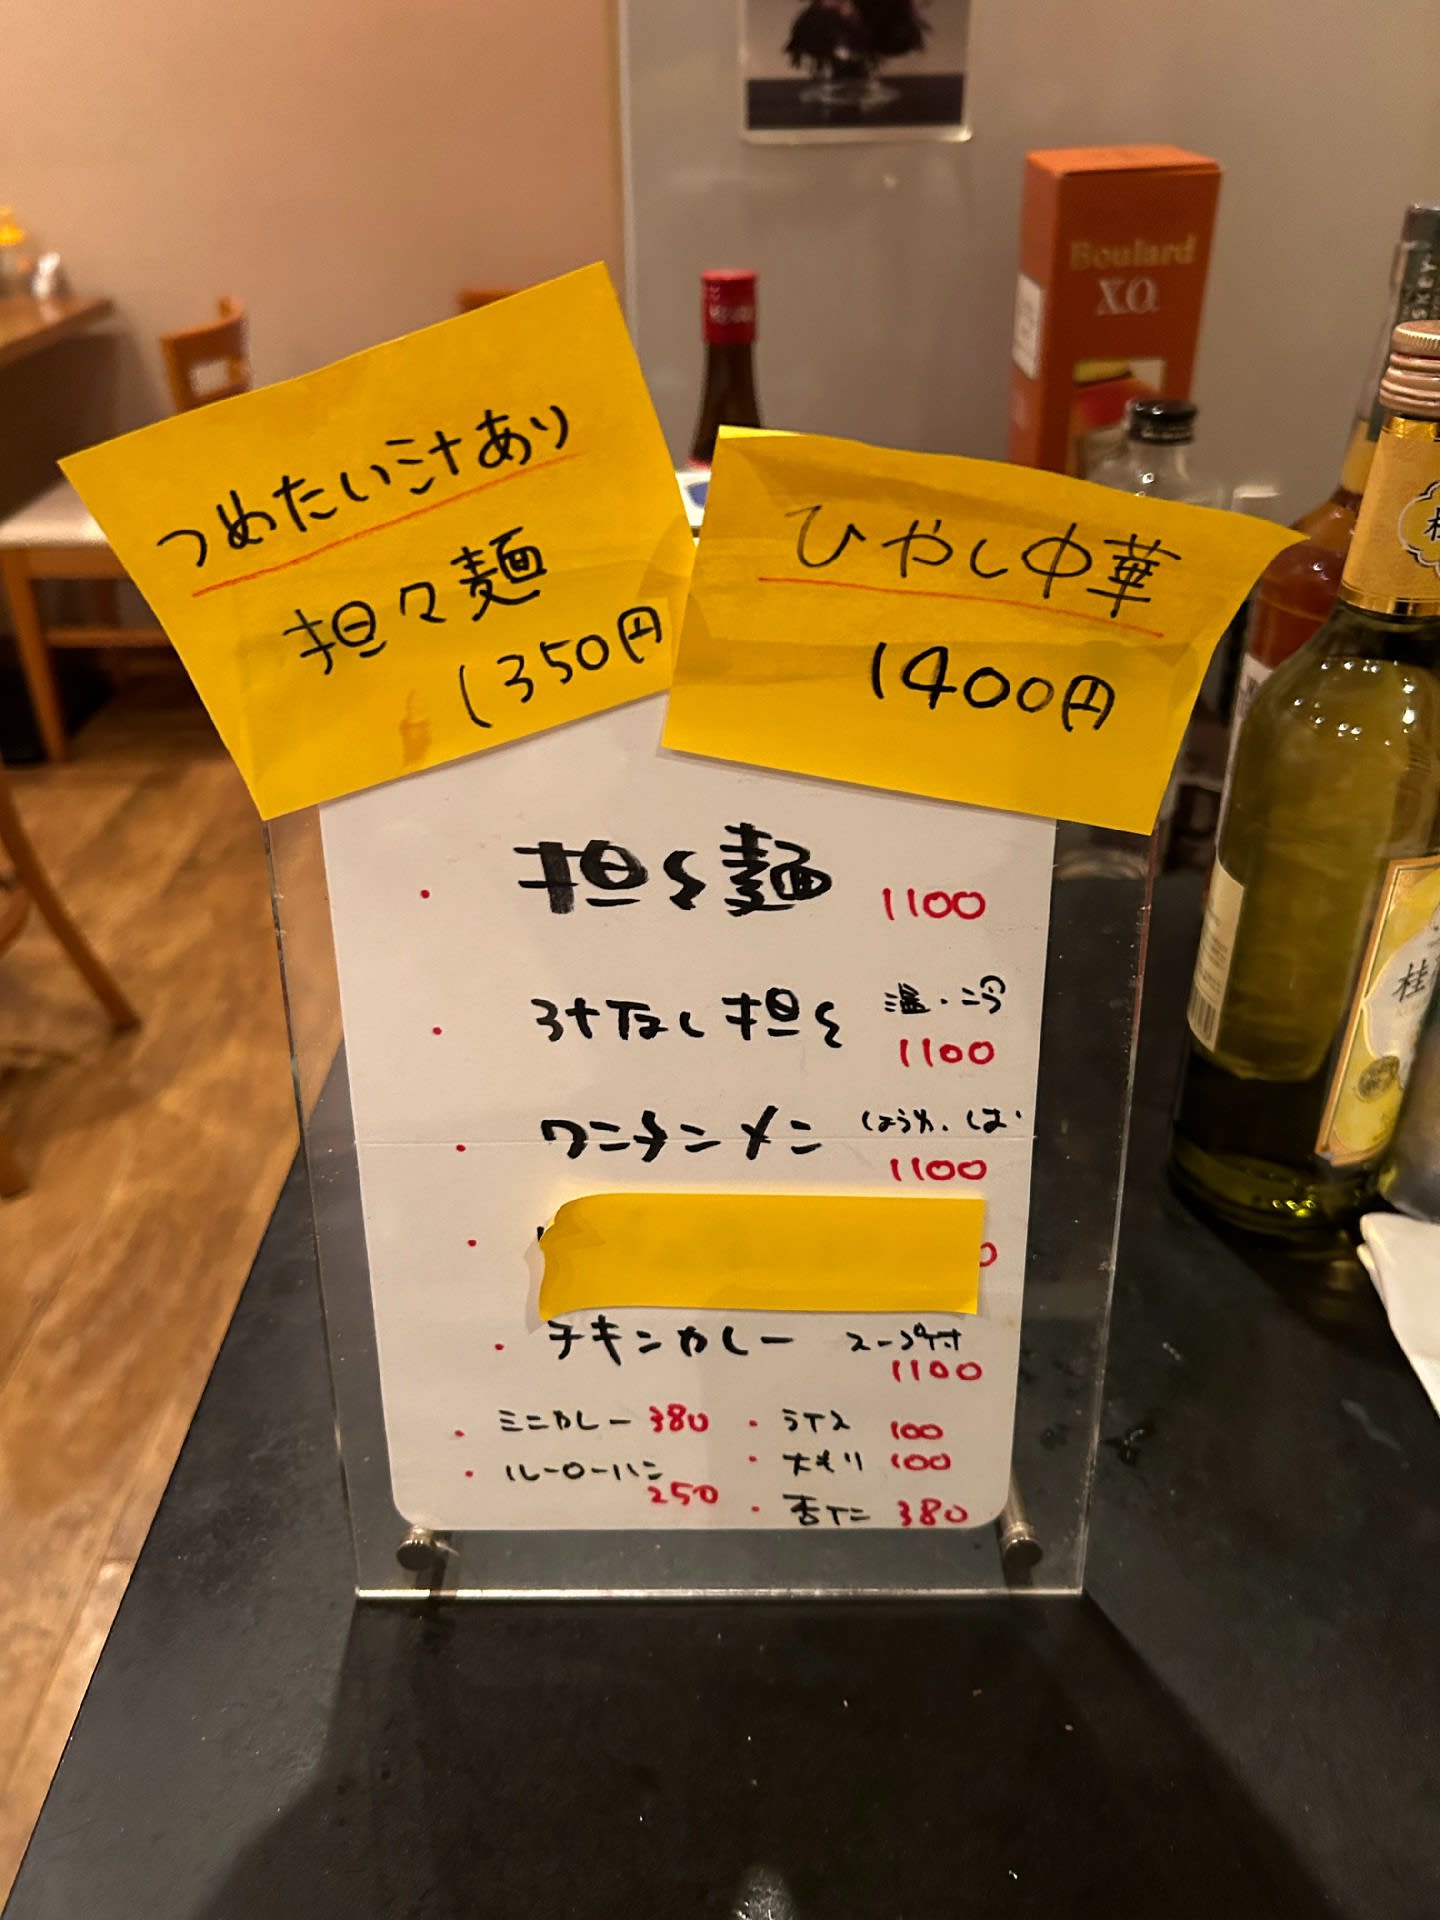 つめたい汁あり
担々麺
1350円
ひやし中華
1400円
・担々麺 1100
・汁なし担々 温・冷
1100
・ワンタンメン しょうゆ、しお
1100
・チキンカレー スープ付
1100
・ミニカレー 380
・ルーローハン
250
・ライス 100
・大もり 100
・杏仁 380
Boulard
X.O.
桂